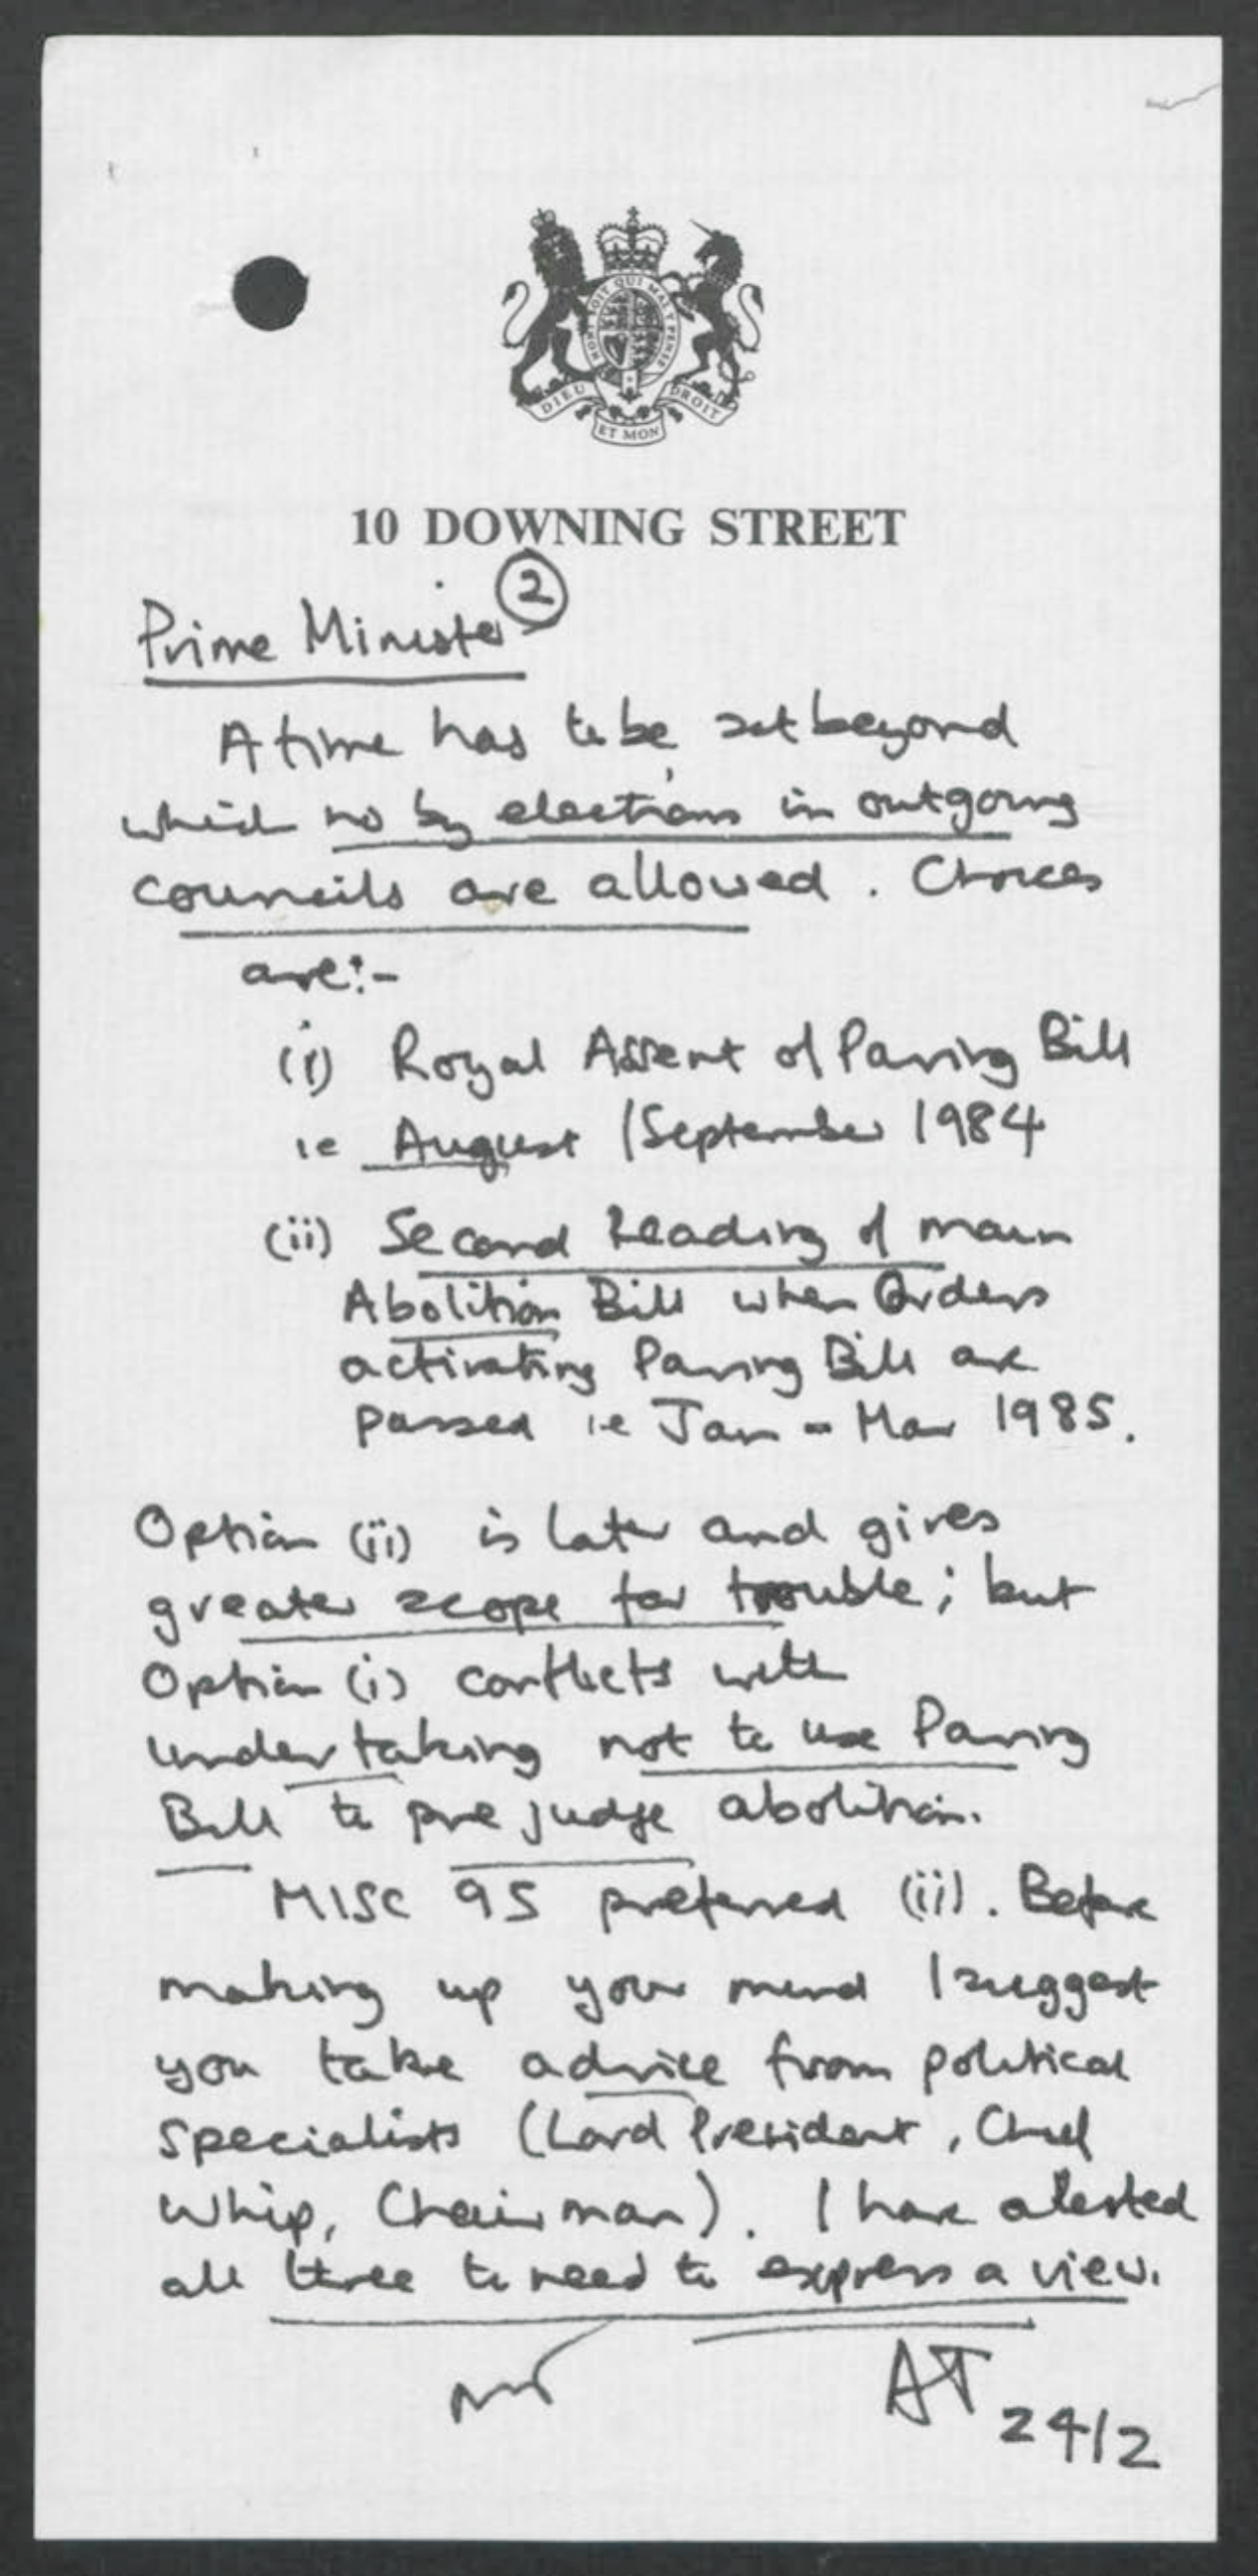 HONI SOIT QUI MAL Y PENSE
DIEU ET MON DROIT
10 DOWNING STREET
2
Prime Minister
A time has to be set beyond
which no by elections in outgoing
councils are allowed. Choices
are:-
(i) Royal Assent of Paving Bill
ie August / September 1984
(ii) Second Reading of main
Abolition Bill when Orders
activating Paving Bill are
passed ie Jan - Mar 1985.
Option (ii) is later and gives
greater scope for trouble; but
Option (i) conflicts with
undertaking not to use Paving
Bill to prejudge abolition.
MISC 95 preferred (ii). Before
making up your mind I suggest
you take advice from political
specialists (Lord President, Chief
Whip, Chairman). I have alerted
all three to need to express a view.
AT 24/2